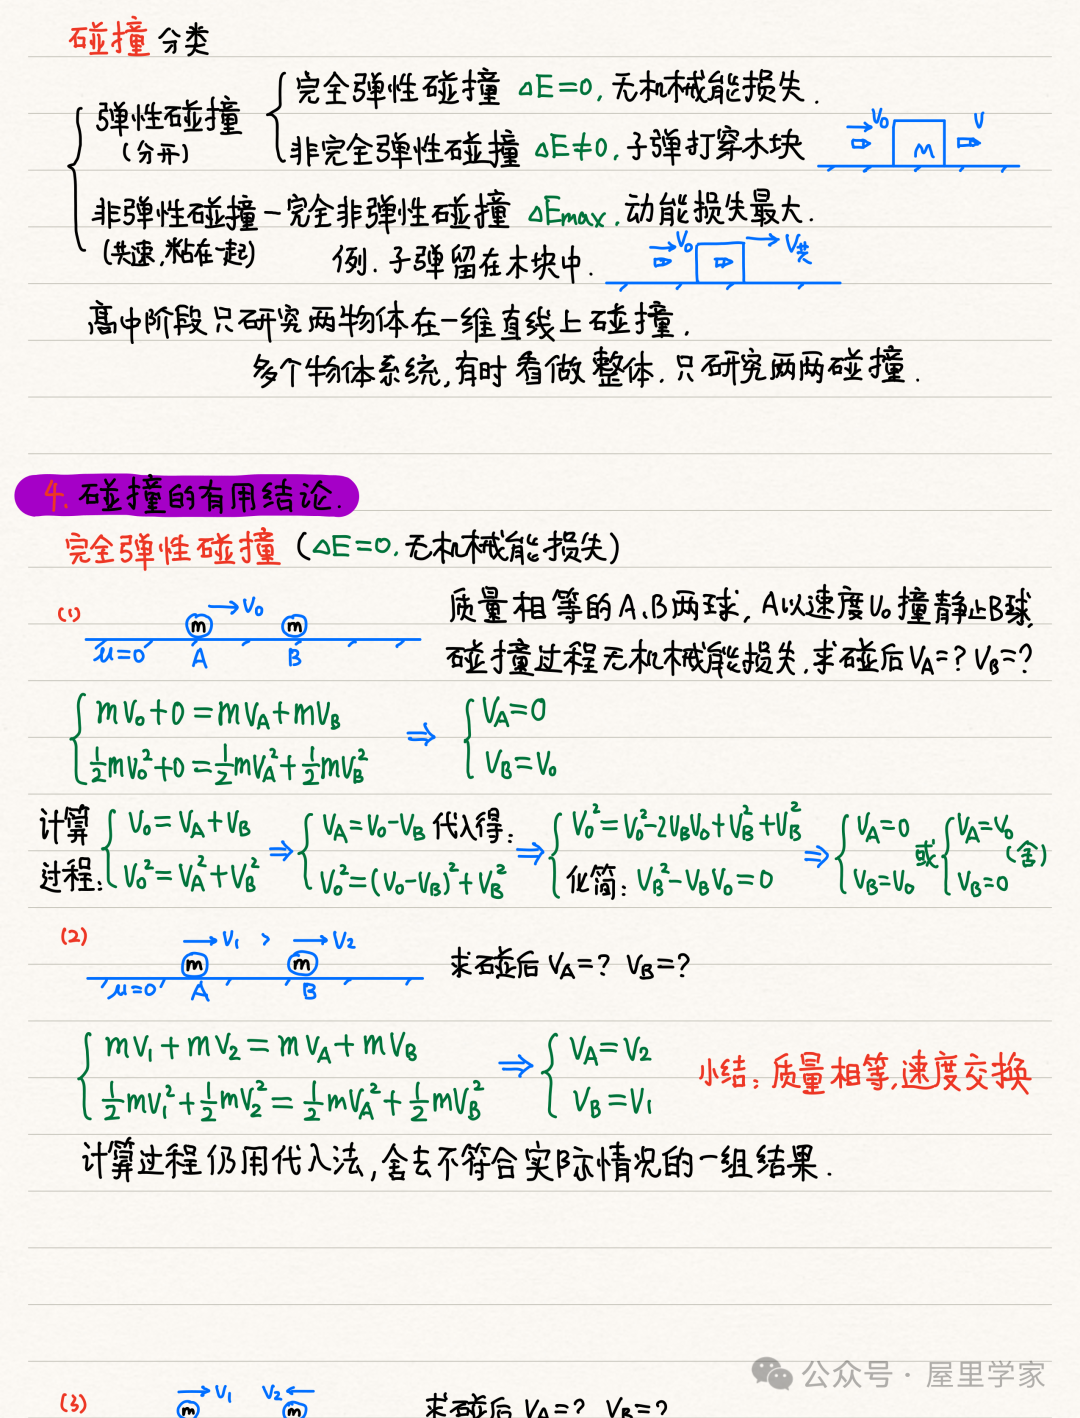 碰撞分类
完全弹性碰撞 △E=0,无机械能损失.
弹性碰撞
(分开)
非完全弹性碰撞 △E≠0,子弹打穿木块
V₀ m V
非弹性碰撞-完全非弹性碰撞 △Emax,动能损失最大.
(共速,粘在一起)
例.子弹留在木块中.
V₀ V共
高中阶段只研究两物体在一维直线上碰撞.
多个物体系统,有时看做整体.只研究两两碰撞.
4.碰撞的有用结论.
完全弹性碰撞(△E=0.无机械能损失)
(1) V₀ m m
μ=0 A B
质量相等的A.B两球,A以速度V₀撞静止B球,
碰撞过程无机械能损失.求碰后VA=?VB=?
mV₀+0=mVA+mVB
½mV₀²+0=½mVA²+½mVB²
⇒ VA=0
VB=V₀
计算过程:
V₀=VA+VB
V₀²=VA²+VB²
⇒ VA=V₀-VB 代入得:
V₀²=(V₀-VB)²+VB²
⇒ V₀²=V₀²-2VBV₀+VB²+VB²
化简:VB²-VBV₀=0
⇒ VA=0
VB=V₀
或 VA=V₀
VB=0
(舍)
(2) V₁ > V₂
m m
μ=0 A B
求碰后VA=? VB=?
mV₁+mV₂=mVA+mVB
½mV₁²+½mV₂²=½mVA²+½mVB²
⇒ VA=V₂
VB=V₁
小结:质量相等,速度交换
计算过程仍用代入法,舍去不符合实际情况的一组结果.
公众号·屋里学家
(3) V₁ V₂
m m
求碰后VA=? VB=?